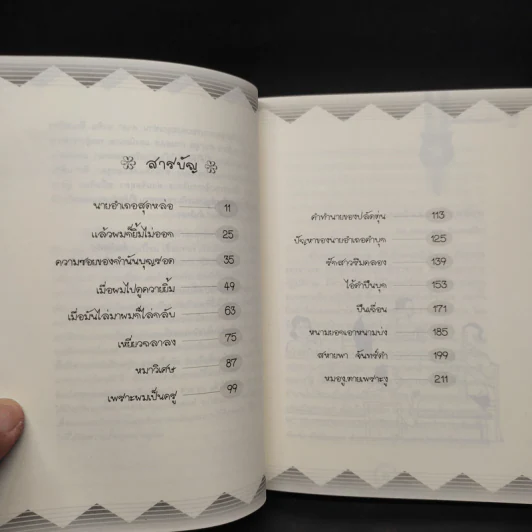 สารบัญ
นายอำเภอสุดหล่อ 11
แล้วผมก็ยิ้มไม่ออก 25
ความซวยของกำนันบุญชอด 35
เมื่อผมไปดูควายยิ้ม 49
เมื่อมันไล่มาผมก็ไล่กลับ 63
เหยี่ยวถลาลง 75
หมาวิเศษ 87
เพราะผมเป็นครู 99
คำทำนายของปลัดตุ่น 113
ปัญหาของนายอำเภอคำบุก 125
รักสาวริมคลอง 139
ไอ้ดำปืนบุก 153
ปืนเถื่อน 171
หนามยอกเอาหนามบ่ง 185
สหายพา จันทร์ดำ 199
หมองูตายเพราะงู 211